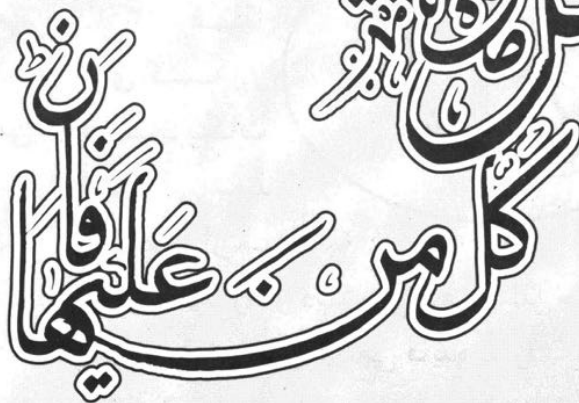 كُلُّ مَنْ عَلَيْهَا فَانٍ